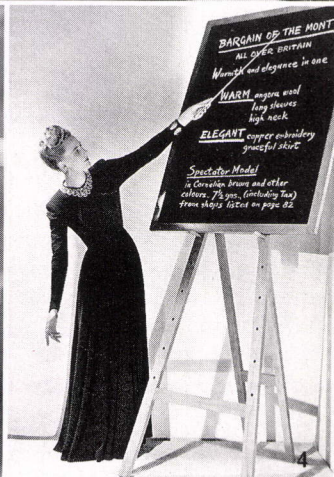 BARGAIN OF THE MONT
ALL OVER BRITAIN
Warmth and elegance in one
WARM angora wool
long sleeves
high neck
ELEGANT copper embroidery
graceful skirt
Spectator Model
in Cornelian brown and other
colours. 7½ gns. (including Tax)
from shops listed on page 82
4